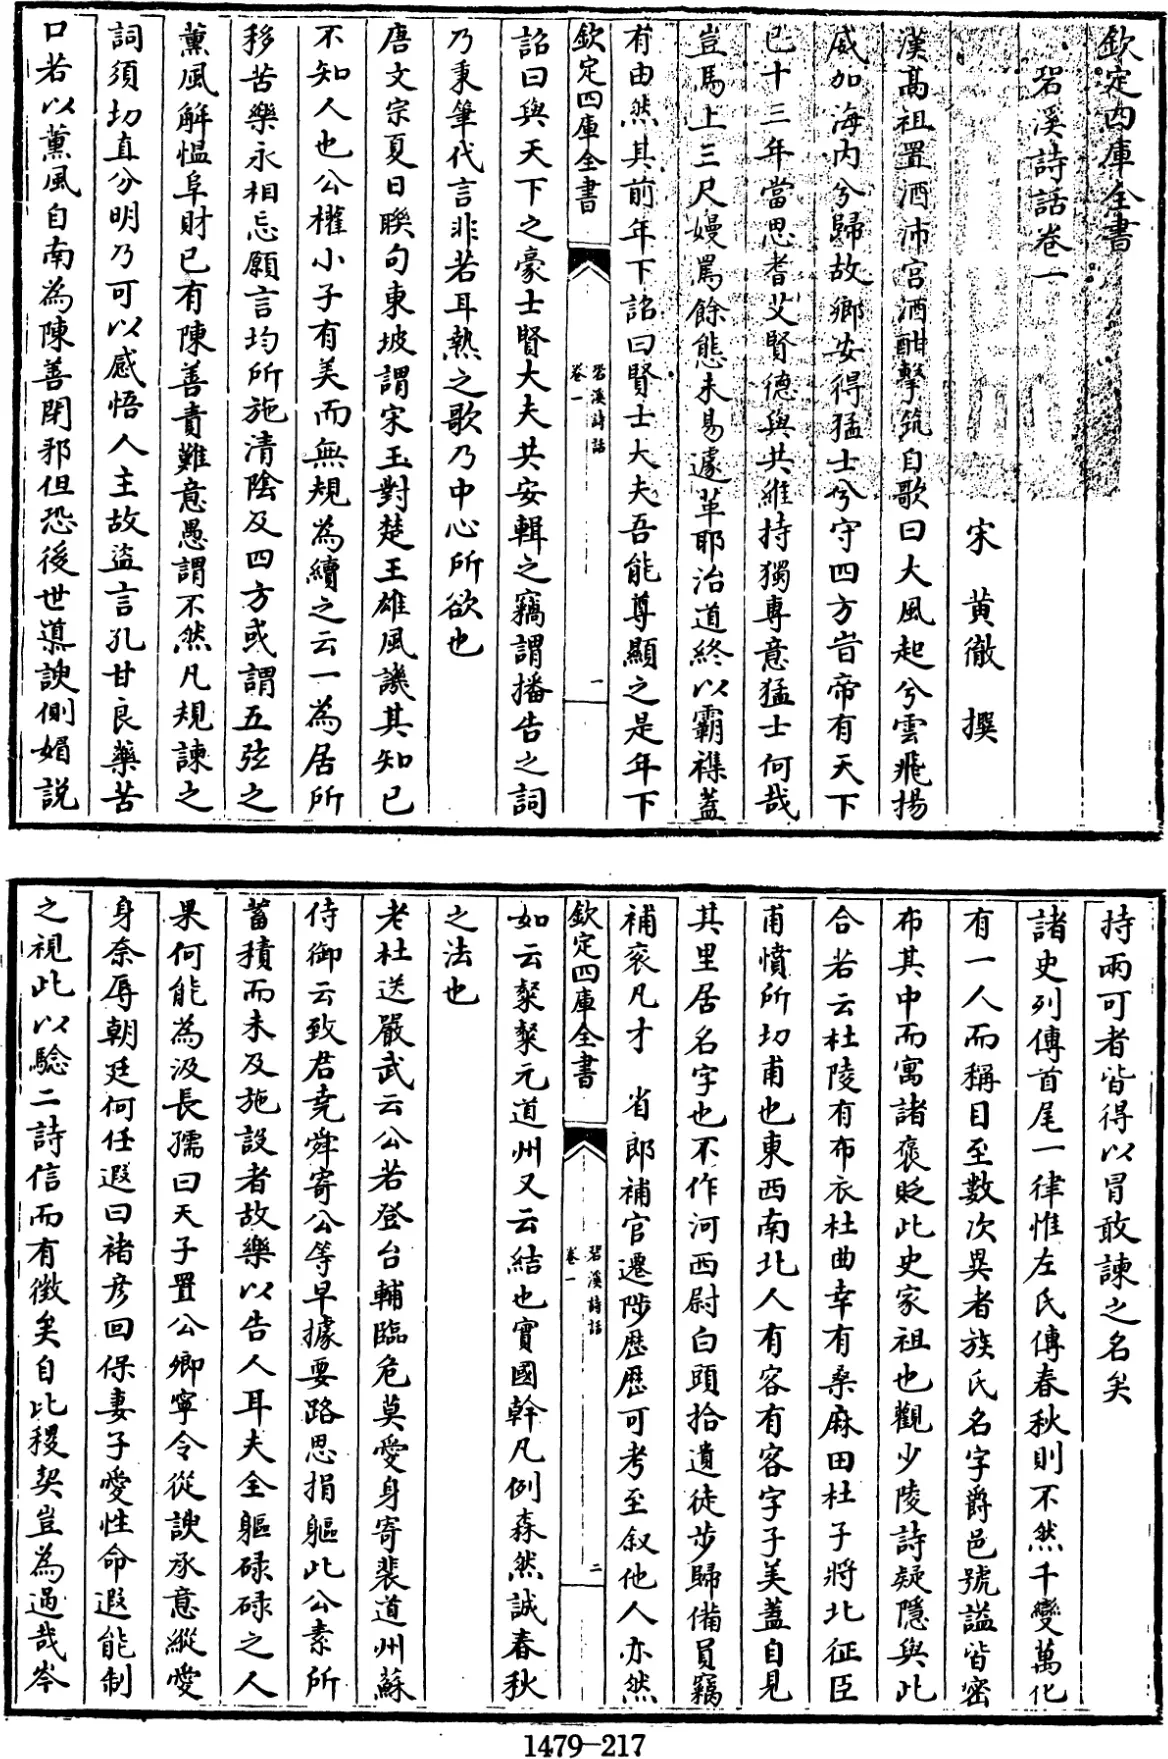 欽定四庫全書
䂬溪詩話卷一
宋 黄徹 撰
漢髙祖置酒沛宫酒酣擊筑自歌曰大風起兮雲飛揚
威加海内兮歸故鄉安得猛士兮守四方昔帝有天下
已十三年當思耆艾賢徳與共維持獨専意猛士何哉
豈馬上三尺嫚罵餘態未易遽革耶治道終以霸襍蓋
有由然其前年下詔曰賢士大夫吾能尊顯之是年下
欽定四庫全書
䂬溪詩話
卷一
一
詔曰與天下之豪士賢大夫共安輯之竊謂播告之詞
乃秉筆代言非若耳熱之歌乃中心所欲也
唐文宗夏日聨句東坡謂宋玉對楚王雄風譏其知已
不知人也公權小子有美而無規為續之云一為居所
移苦樂永相忘願言均所施清陰及四方或謂五弦之
薫風解愠阜財已有陳善責難意愚謂不然凡規諫之
詞須切直分明乃可以感悟人主故盗言孔甘良藥苦
口若以薫風自南為陳善閉邪但恐後世導諛側媚説
持兩可者皆得以冒敢諫之名矣
諸史列傳首尾一律惟左氏傳春秋則不然千變萬化
有一人而稱目至數次異者族氏名字爵邑號謚皆宻
布其中而寓諸襃貶此史家祖也觀少陵詩疑隱與此
合若云杜陵有布衣杜曲幸有桑麻田杜子將北征臣
甫憤所切甫也東西南北人有客有客字子美蓋自見
其里居名字也不作河西尉白頭拾遺徒歩歸備員竊
補衮凡才 省郎補官遷陟歴歴可考至叙他人亦然
欽定四庫全書
䂬溪詩話
卷一
二
如云粲粲元道州又云結也實國幹凡例森然誠春秋
之法也
老杜送嚴武云公若登台輔臨危莫愛身寄裴道州蘇
侍御云致君堯舜寄公等早據要路思捐軀此公素所
蓄積而未及施設者故樂以告人耳夫全軀碌碌之人
果何能為汲長孺曰天子置公卿寧令從諛承意縱愛
身奈辱朝廷何任遐曰褚彦回保妻子愛性命遐能制
之視此以驗二詩信而有徴矣自比稷契豈為過哉岑
1479-217